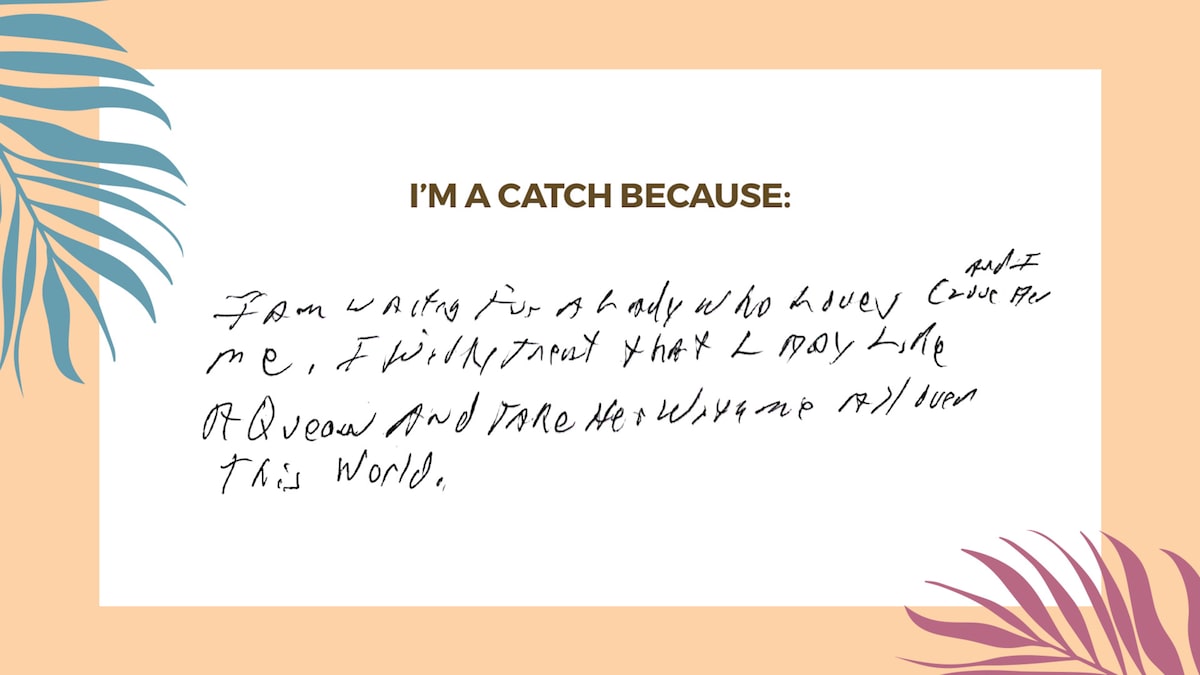 I'M A CATCH BECAUSE:
and I
I Am waitng For A Lady who Loves Love Her
me. I will treat that Lady Like
A Queen And TAKe Her With me All over
This World.